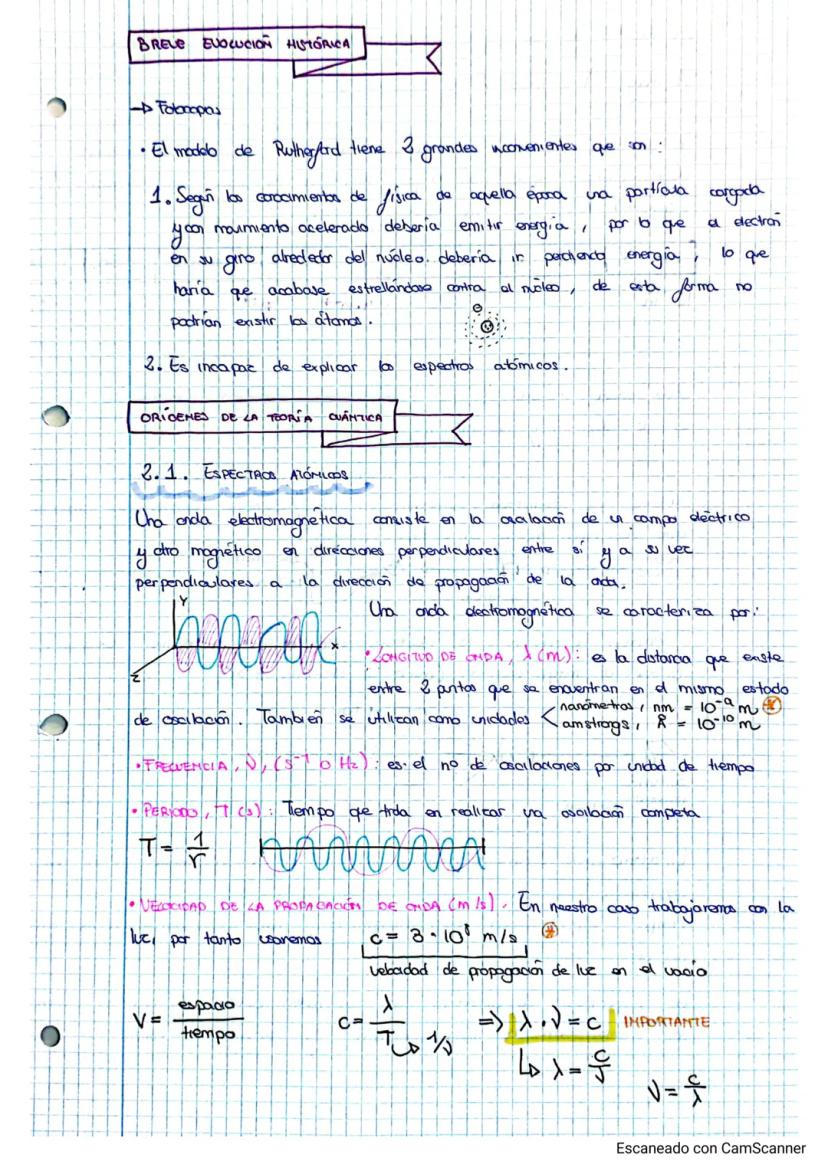 BREVE EVOLUCIÓN HISTÓRICA
→ Fotocopias
• El modelo de Rutherford tiene 2 grandes inconvenientes que son :
1. Según los conocimientos de física de aquella época una partícula cargada
y con movimiento acelerado debería emitir energía, por lo que el electrón
en su giro alrededor del núcleo debería ir perdiendo energía, lo que
haría que acabase estrellándose contra el núcleo, de esta forma no
podrían existir los átomos.
2. Es incapaz de explicar los espectros atómicos.
ORÍGENES DE LA TEORÍA CUÁNTICA
2.1. ESPECTROS ATÓMICOS
Una onda electromagnética consiste en la oscilación de un campo eléctrico
y otro magnético en direcciones perpendiculares entre sí y a su vez
perpendiculares a la dirección de propagación de la onda.
Y
x
z
Una onda electromagnética se caracteriza por:
• LONGITUD DE ONDA, λ (m): es la distancia que existe
entre 2 puntos que se encuentran en el mismo estado
de oscilación. También se utilizan como unidades < nanómetros, nm = 10⁻⁹ m *
amstrogs, Å = 10⁻¹⁰ m
• FRECUENCIA, ν, (s⁻¹ o Hz): es el nº de oscilaciones por unidad de tiempo
• PERIODO, T (s): Tiempo que tarda en realizar una oscilación completa
T = 1/ν
• VELOCIDAD DE LA PROPAGACIÓN DE ONDA (m/s). En nuestro caso trabajaremos con la
luz, por tanto usaremos c = 3·10⁸ m/s *
velocidad de propagación de luz en el vacío
V = espacio/tiempo c = λ/T ↳ 1/ν ⇒ λ·ν = c IMPORTANTE
↳ λ = c/ν
ν = c/λ
Escaneado con CamScanner